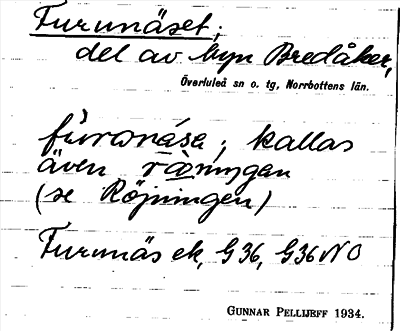 Furunäset;
del av byn Bredåker,
Överluleå sn o. tg, Norrbottens län.
fùrɷnása; kallas
även ræ̀nıŋgan
(se Röjningen)
Furunäs ek, G36, G36 NO
GUNNAR PELLIJEFF 1934.